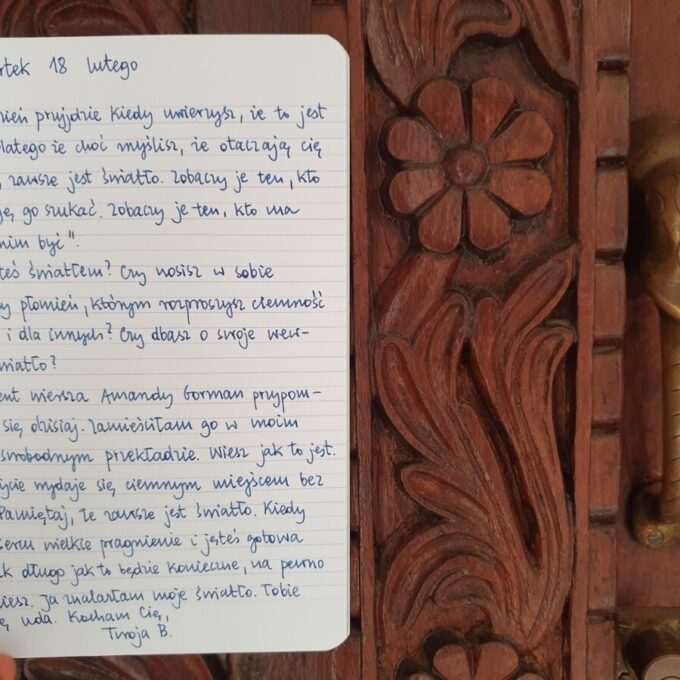 rtek 18 lutego
zień przyjdzie kiedy uwierzysz, że to jest
latego że choć myślisz, że otaczają cię
, zawsze jest światło. Zobaczy je ten, kto
ję go szukać. Zobaczy je ten, kto ma
nim być".
teś światłem? Czy nosisz w sobie
y płomień, którym rozproszysz ciemność
i dla innych? Czy dbasz o swoje wew-
wiatło?
ent wiersza Amandy Gorman przypom-
się dzisiaj. Zamieściłam go w moim
swobodnym przekładzie. Wiesz jak to jest.
ycie wydaje się ciemnym miejscem bez
Pamiętaj, że zawsze jest światło. Kiedy
sercu wielkie pragnienie i jesteś gotowa
k długo jak to będzie konieczne, na pewno
iesz. Ja znalazłam moje światło. Tobie
ę uda. Kocham Cię,
Twoja B.